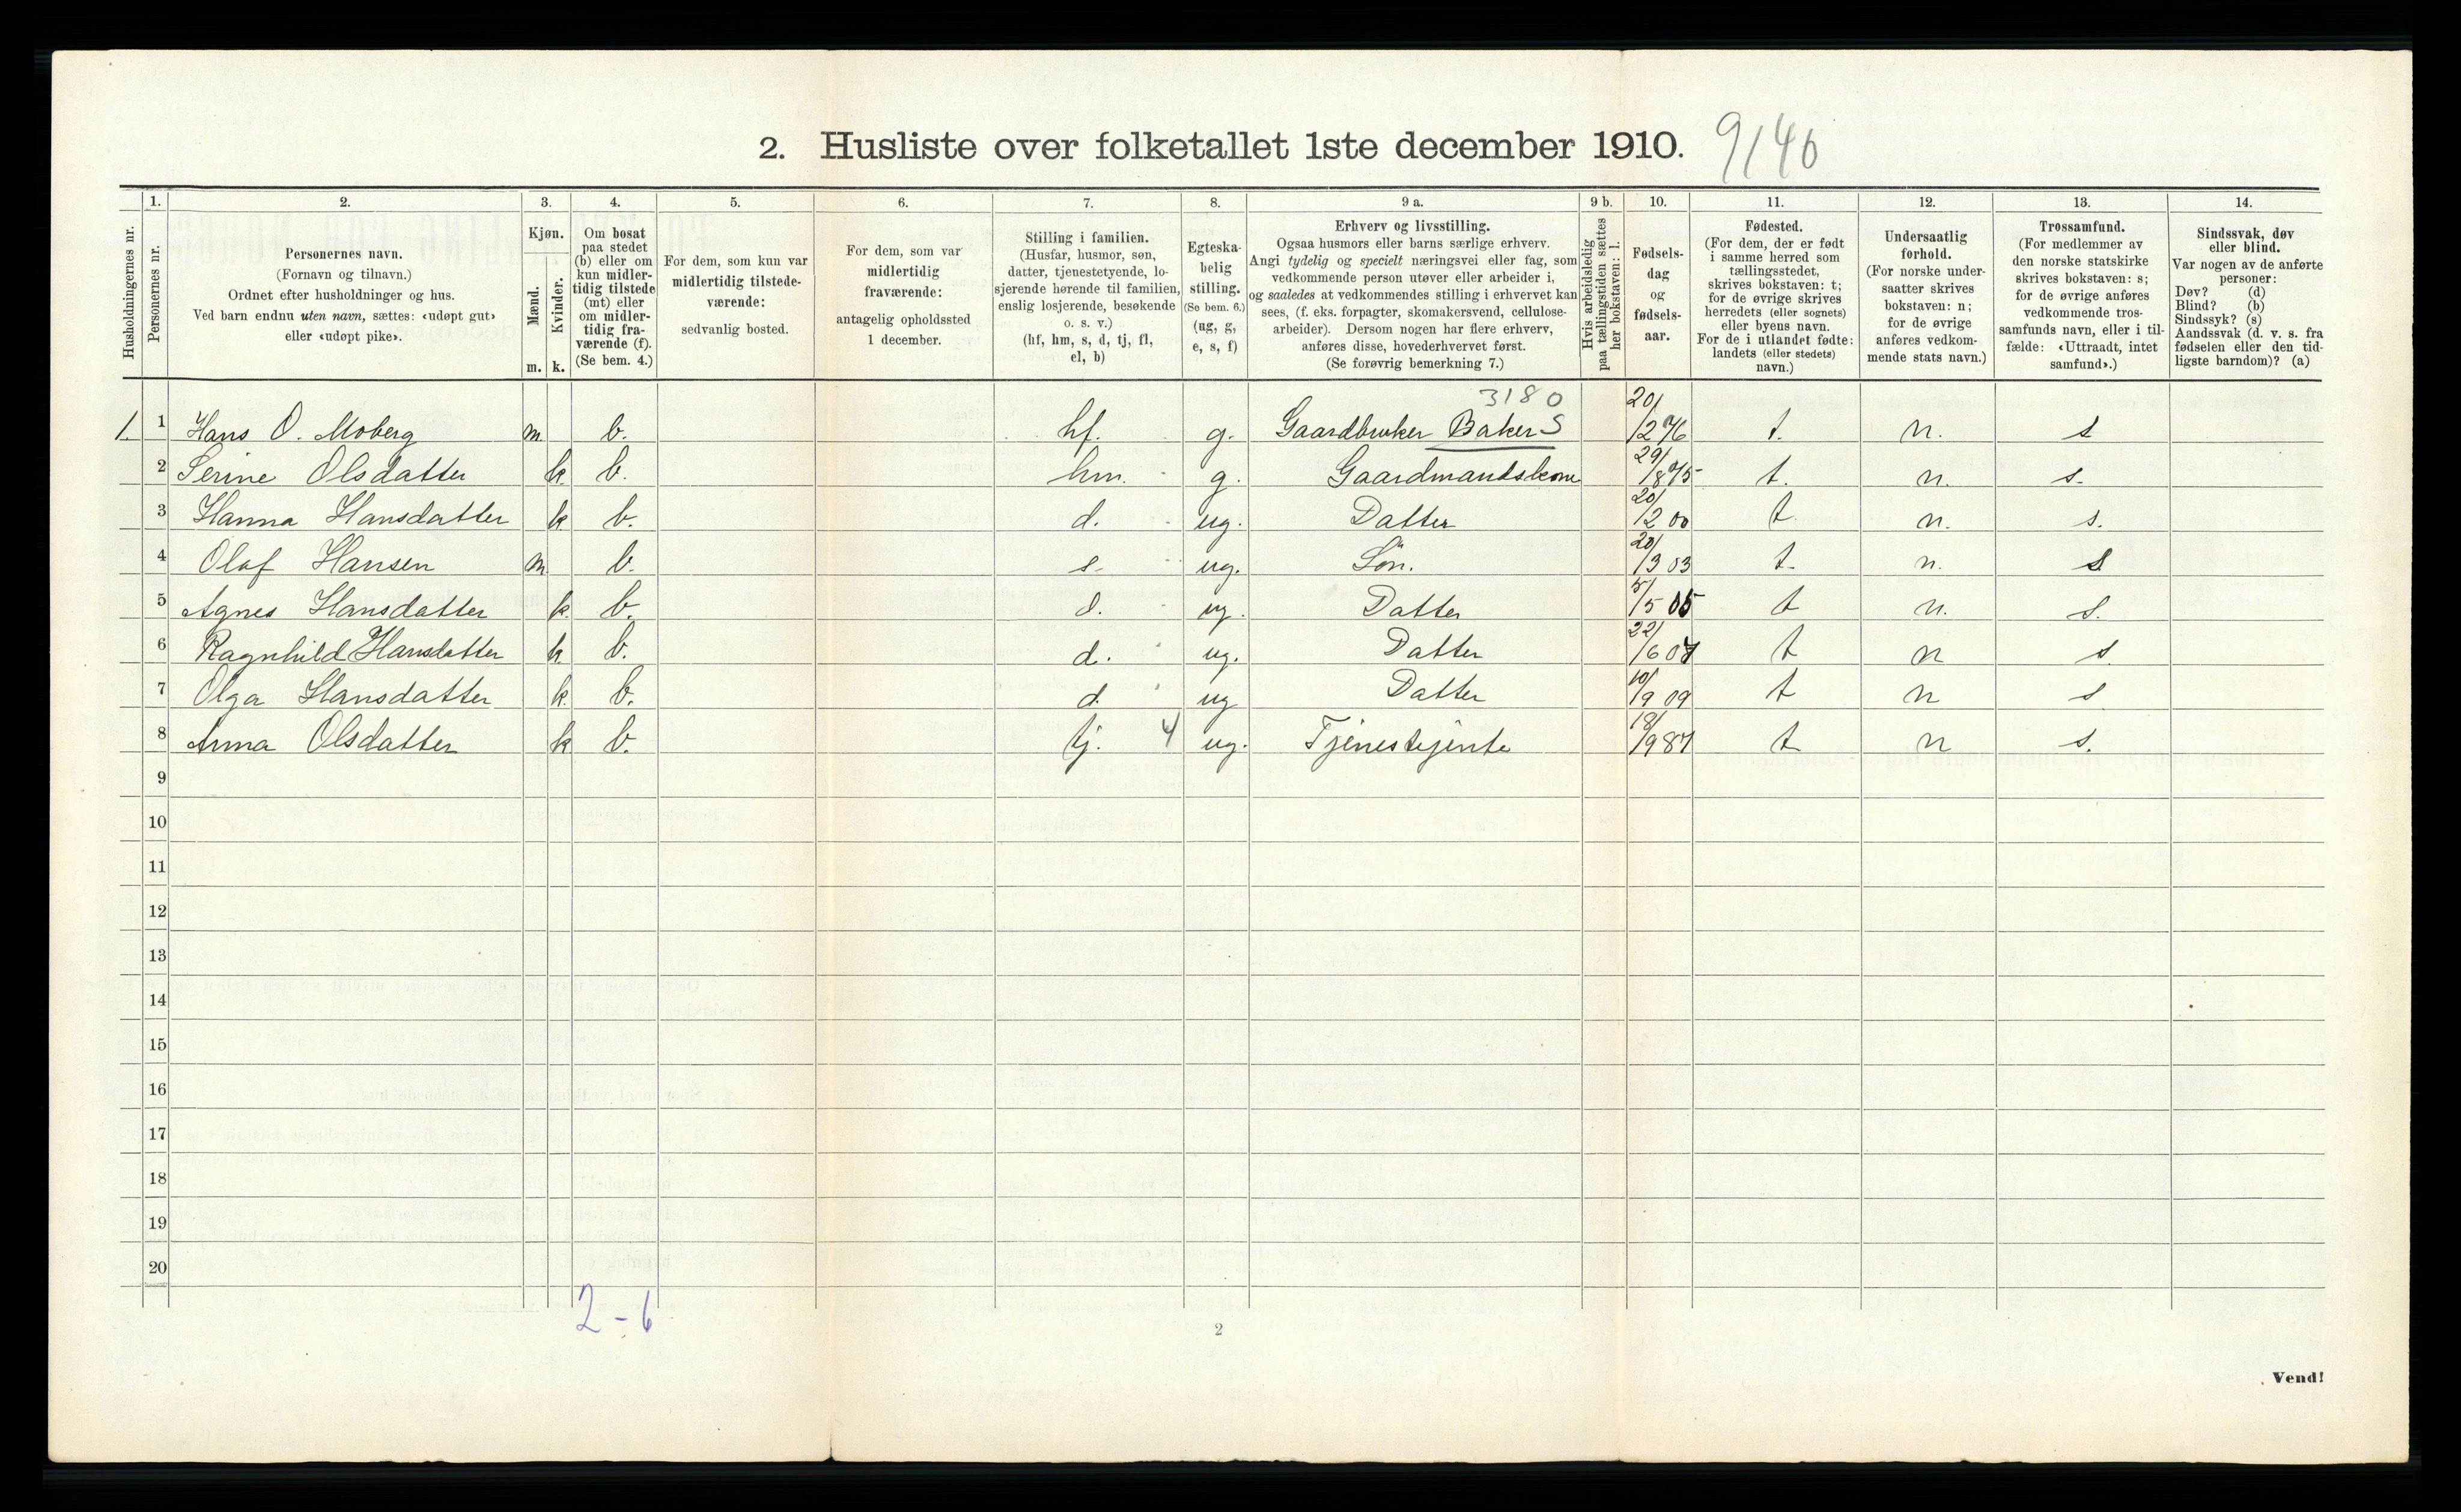 2. Husliste over folketallet 1ste december 1910. 9/40
Husholdningernes nr.
1.
Personernes nr.
2.
Personernes navn.
(Fornavn og tilnavn.)
Ordnet efter husholdninger og hus.
Ved barn endnu uten navn, sættes: «udøpt gut»
eller «udøpt pike».
3.
Kjøn.
Mænd.
Kvinder.
m. k.
4.
Om bosat
paa stedet
(b) eller om
kun midler-
tidig tilstede
(mt) eller
om midler-
tidig fra-
værende (f).
(Se bem. 4.)
5.
For dem, som kun var
midlertidig tilstede-
værende:
sedvanlig bosted.
6.
For dem, som var
midlertidig
fraværende:
antagelig opholdssted
1 december.
7.
Stilling i familien.
(Husfar, husmor, søn,
datter, tjenestetyende, lo-
sjerende hørende til familien,
enslig losjerende, besøkende
o. s. v.)
(hf, hm, s, d, tj, fl,
el, b)
8.
Egteska-
belig
stilling.
(Se bem. 6.)
(ug, g,
e, s, f)
9 a.
Erhverv og livsstilling.
Ogsaa husmors eller barns særlige erhverv.
Angi tydelig og specielt næringsvei eller fag, som
vedkommende person utøver eller arbeider i,
og saaledes at vedkommendes stilling i erhvervet kan
sees, (f. eks. forpagter, skomakersvend, cellulose-
arbeider). Dersom nogen har flere erhverv,
anføres disse, hovederhvervet først.
(Se forøvrig bemerkning 7.)
9 b.
Hvis arbeidsledig
paa tællingstiden sættes
her bokstaven: l.
10.
Fødsels-
dag
og
fødsels-
aar.
11.
Fødested.
(For dem, der er født
i samme herred som
tællingsstedet,
skrives bokstaven: t;
for de øvrige skrives
herredets (eller sognets)
eller byens navn.
For de i utlandet fødte:
landets (eller stedets)
navn.)
12.
Undersaatlig
forhold.
(For norske under-
saatter skrives
bokstaven: n;
for de øvrige
anføres vedkom-
mende stats navn.)
13.
Trossamfund.
(For medlemmer av
den norske statskirke
skrives bokstaven: s;
for de øvrige anføres
vedkommende tros-
samfunds navn, eller i til-
fælde: «Uttraadt, intet
samfund».)
14.
Sindssvak, døv
eller blind.
Var nogen av de anførte
personer:
Døv? (d)
Blind? (b)
Sindssyk? (s)
Aandssvak (d. v. s. fra
fødselen eller den tid-
ligste barndom)? (a)
3180
1. 1 Hans O. Moberg m b. hf. g. Gaardbruker Baker S 20/12 76 t. n. s
2 Serine Olsdatter k. b. hm. g. Gaardmandskone 29/8 75 t. n. s.
3 Hanna Hansdatter k b. d. ug. Datter 20/2 00 t n. s.
4 Olaf Hansen m b. s. ug. Søn. 20/3 03 t. n. s
5 Agnes Hansdatter k. b. d. ug. Datter 5/5 05 t n. s.
6 Ragnhild Hansdatter k. b. d. ug. Datter 22/6 07 t n s
7 Olga Hansdatter k. b. d. ug Datter 10/9 09 t n s
8 Anna Olsdatter k b. tj. 4 ug. Tjenestejente 18/9 87 t n s.
9
10
11
12
13
14
15
16
17
18
19
20
2 - 6
2
Vend!